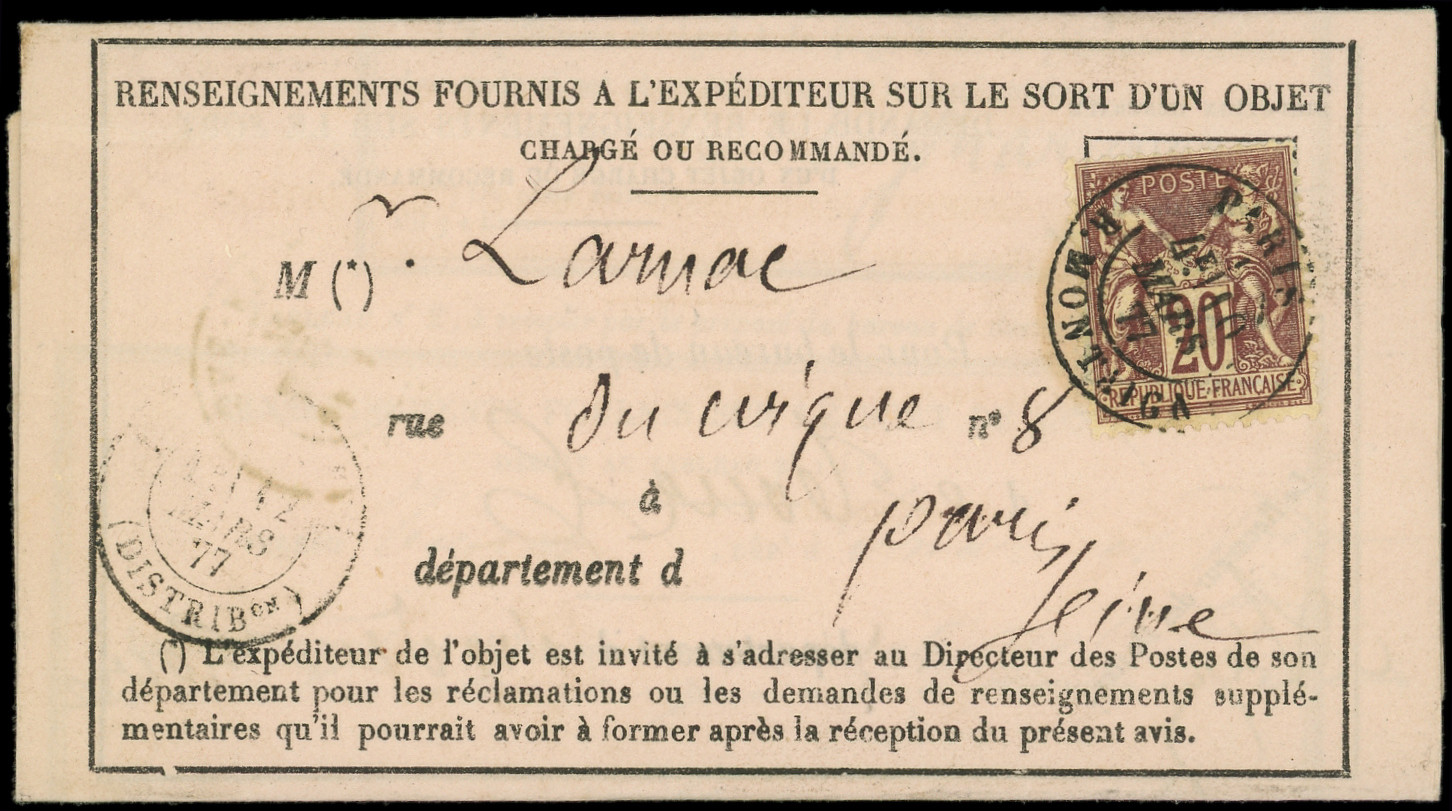 RENSEIGNEMENTS FOURNIS A L'EXPÉDITEUR SUR LE SORT D'UN OBJET
CHARGÉ OU RECOMMANDÉ.
POSTE
PARIS
R. MONT
MARS
77
20
REPUBLIQUE FRANÇAISE
M (*) r. Larnac
rue du cirque nº 8
à paris
département d Seine
MARS
77
(DISTRIBON)
(*) L'expéditeur de l'objet est invité à s'adresser au Directeur des Postes de son
département pour les réclamations ou les demandes de renseignements supplé-
mentaires qu'il pourrait avoir à former après la réception du présent avis.